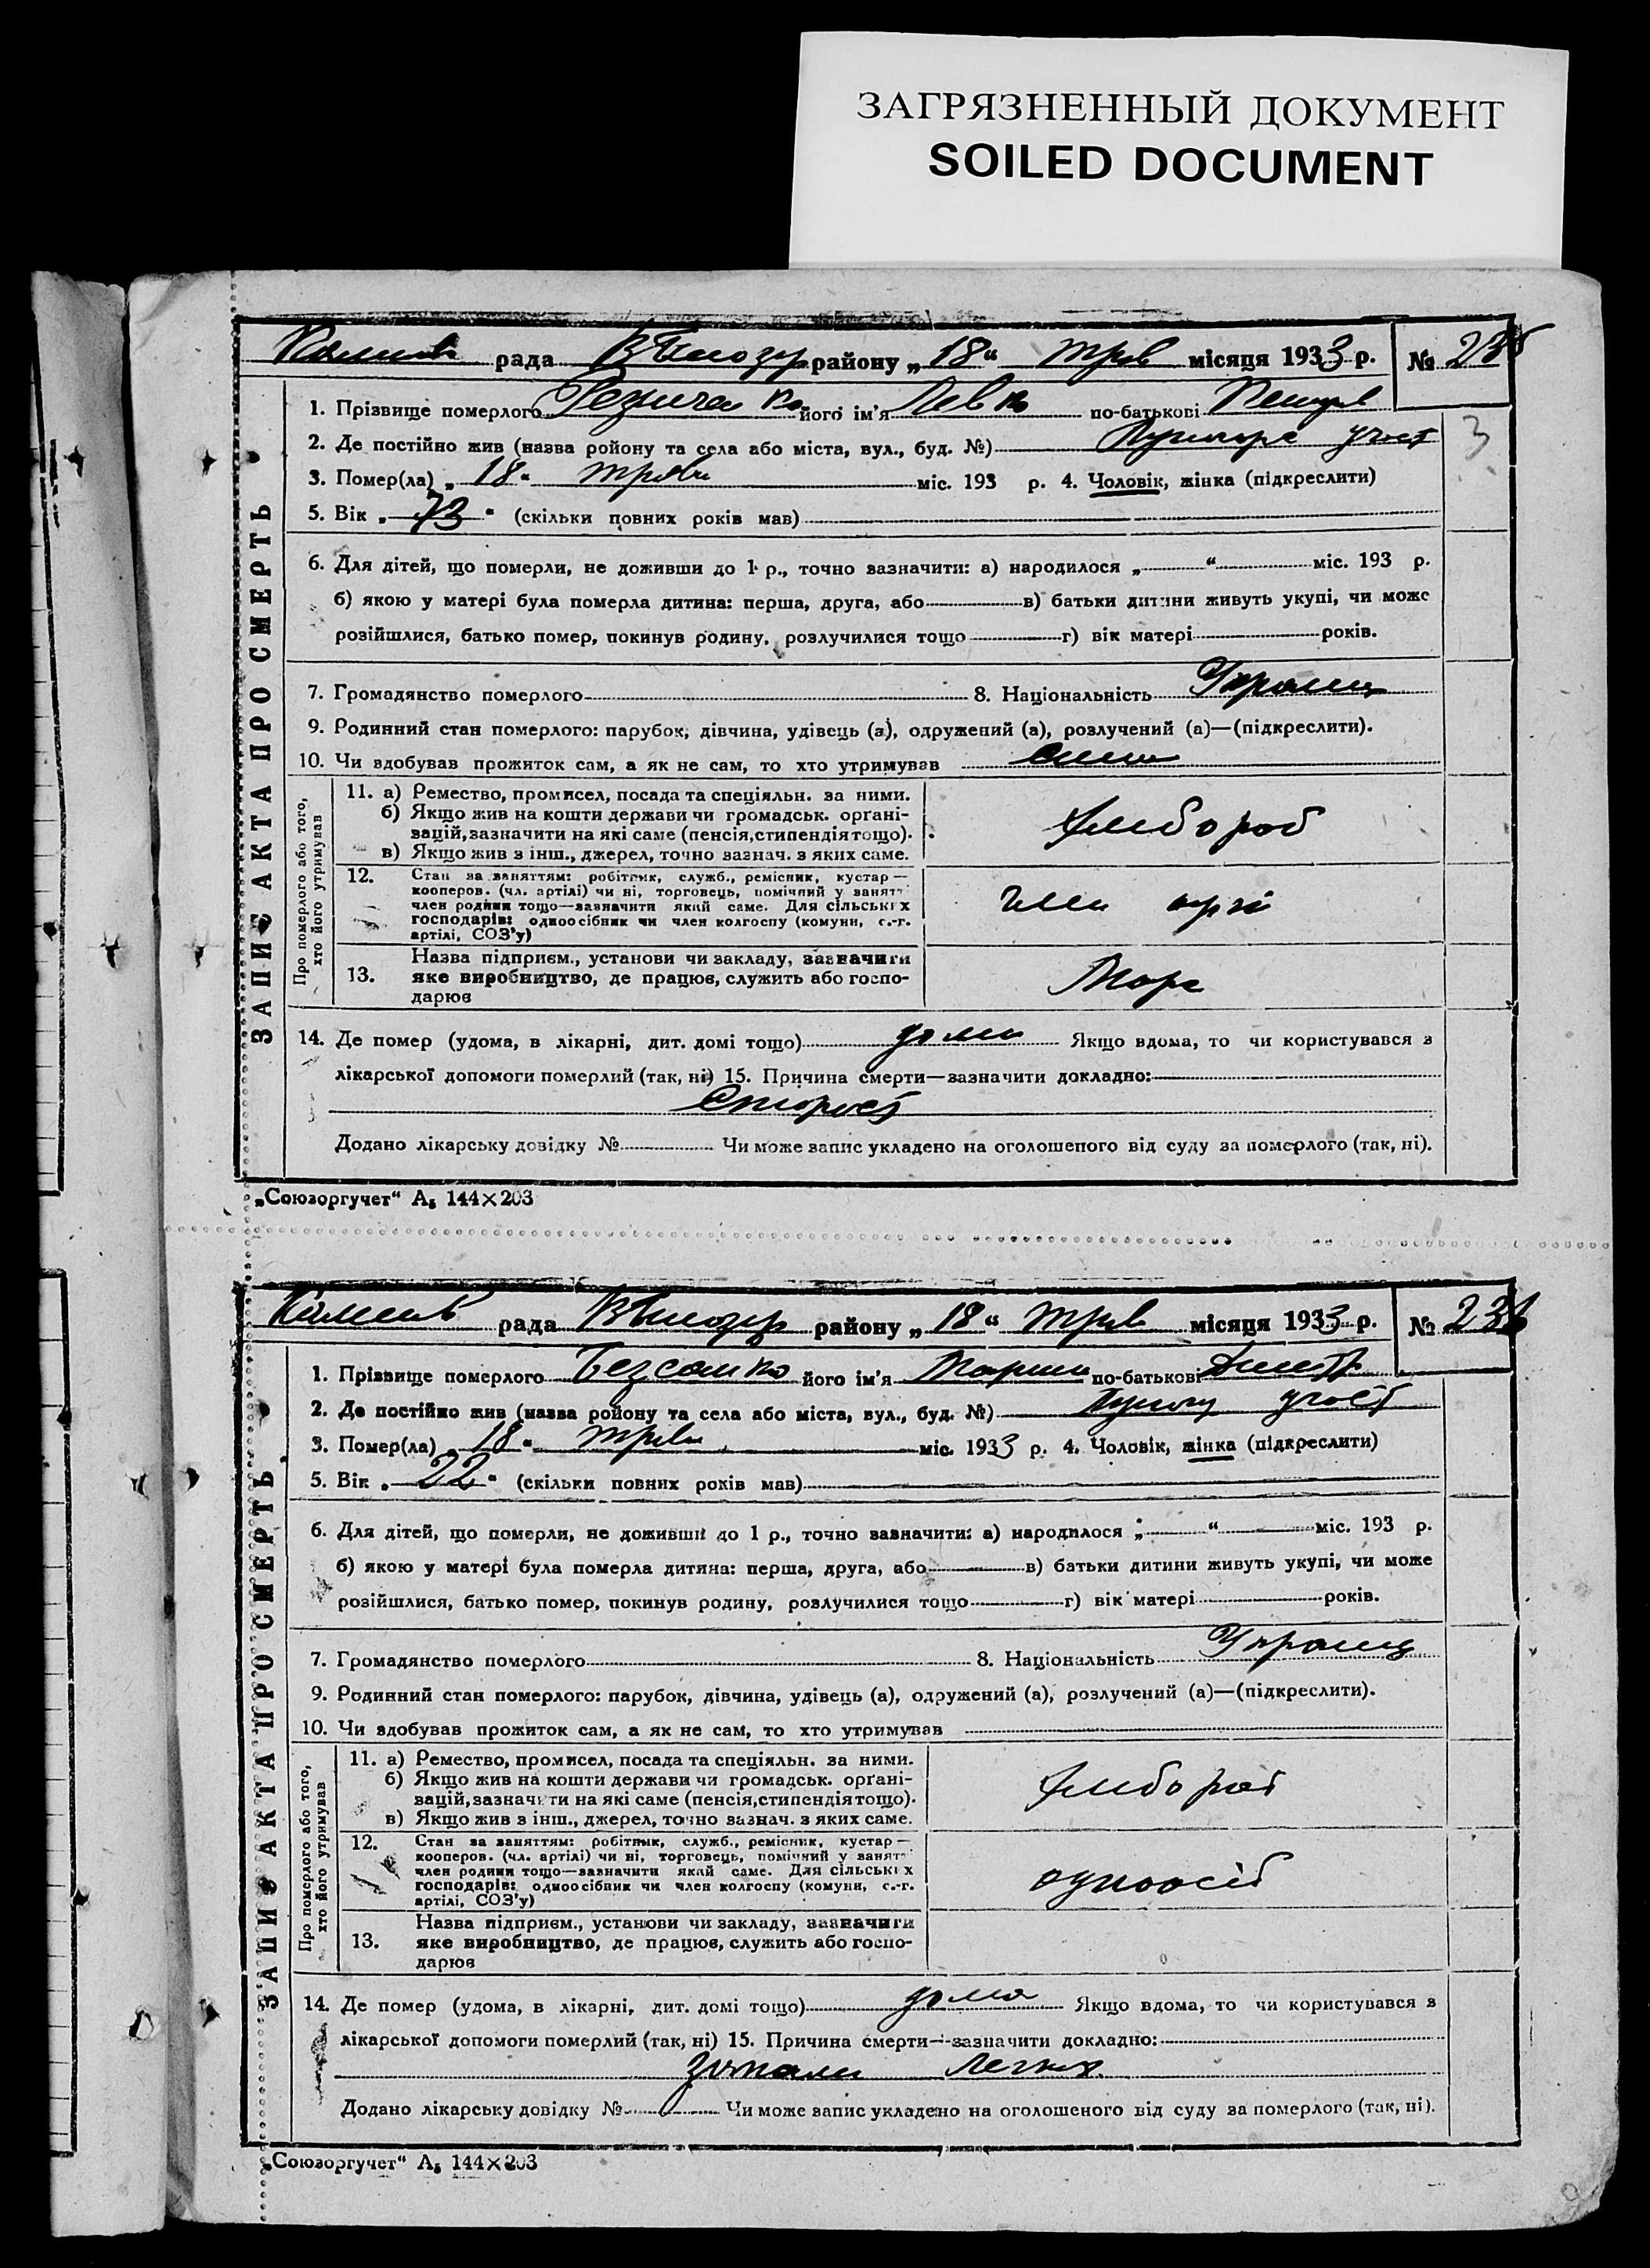 ЗАГРЯЗНЕННЫЙ ДОКУМЕНТ
SOILED DOCUMENT
рада району „18“ трав місяця 1933 р. №
1. Прізвище померлого його ім'я Левко по-батькові
2. Де постійно жив (назва ройону та села або міста, вул., буд. №)
3. Помер(ла) „18“ трав міс. 193 р. 4. Чоловік, жінка (підкреслити)
3
5. Вік „73“ (скільки повних років мав)
6. Для дітей, що померли, не доживши до 1 р., точно зазначити: а) народилося „ “ міс. 193 р.
б) якою у матері була померла дитина: перша, друга, або в) батьки дитини живуть укупі, чи може
розійшлися, батько помер, покинув родину, розлучилися тощо г) вік матері років.
7. Громадянство померлого 8. Національність Украин
9. Родинний стан померлого: парубок, дівчина, удівець (а), одружений (а), розлучений (а)—(підкреслити).
10. Чи здобував прожиток сам, а як не сам, то хто утримував
ЗАПИС АКТА ПРО СМЕРТЬ
Про померлого або того,
хто його утримував
11. а) Ремество, промисел, посада та спеціяльн. за ними.
б) Якщо жив на кошти держави чи громадськ. орґані-
зацій, зазначити на які саме (пенсія, стипендія тощо).
в) Якщо жив з інш., джерел, точно зазнач. з яких саме.
хлібороб
12. Стан за заняттям: робітник, служб., ремісник, кустар—
кооперов. (чл. артілі) чи ні, торговець, помічний у занятт
член родини тощо—зазначити який саме. Для сільських
господарів: одноосібник чи член колгоспу (комуни, с.-г.
артілі, СОЗ'у)
член арті
13. Назва підприєм., установи чи закладу, зазначити
яке виробництво, де працює, служить або госпо-
дарює
14. Де помер (удома, в лікарні, дит. домі тощо) дома Якщо вдома, то чи користувався з
лікарської допомоги померлий (так, ні) 15. Причина смерти—зазначити докладно:
Старость
Додано лікарську довідку № Чи може запис укладено на оголошеного від суду за померлого (так, ні).
„Союзоргучет“ А₅ 144×203
рада району „18“ трав місяця 1933 р. №
1. Прізвище померлого його ім'я по-батькові
2. Де постійно жив (назва ройону та села або міста, вул., буд. №)
3. Помер(ла) „18“ трав міс. 1933 р. 4. Чоловік, жінка (підкреслити)
5. Вік „22“ (скільки повних років мав)
6. Для дітей, що померли, не доживши до 1 р., точно зазначити: а) народилося „ “ міс. 193 р.
б) якою у матері була померла дитина: перша, друга, або в) батьки дитини живуть укупі, чи може
розійшлися, батько помер, покинув родину, розлучилися тощо г) вік матері років.
7. Громадянство померлого 8. Національність Украин
9. Родинний стан померлого: парубок, дівчина, удівець (а), одружений (а), розлучений (а)—(підкреслити).
10. Чи здобував прожиток сам, а як не сам, то хто утримував
ЗАПИС АКТА ПРО СМЕРТЬ
Про померлого або того,
хто його утримував
11. а) Ремество, промисел, посада та спеціяльн. за ними.
б) Якщо жив на кошти держави чи громадськ. орґані-
зацій, зазначити на які саме (пенсія, стипендія тощо).
в) Якщо жив з інш., джерел, точно зазнач. з яких саме.
хлібороб
12. Стан за заняттям: робітник, служб., ремісник, кустар—
кооперов. (чл. артілі) чи ні, торговець, помічний у занятт
член родини тощо—зазначити який саме. Для сільських
господарів: одноосібник чи член колгоспу (комуни, с.-г.
артілі, СОЗ'у)
одноосіб
13. Назва підприєм., установи чи закладу, зазначити
яке виробництво, де працює, служить або госпо-
дарює
14. Де помер (удома, в лікарні, дит. домі тощо) дома Якщо вдома, то чи користувався з
лікарської допомоги померлий (так, ні) 15. Причина смерти—зазначити докладно:
легких
Додано лікарську довідку № Чи може запис укладено на оголошеного від суду за померлого (так, ні).
„Союзоргучет“ А₅ 144×203